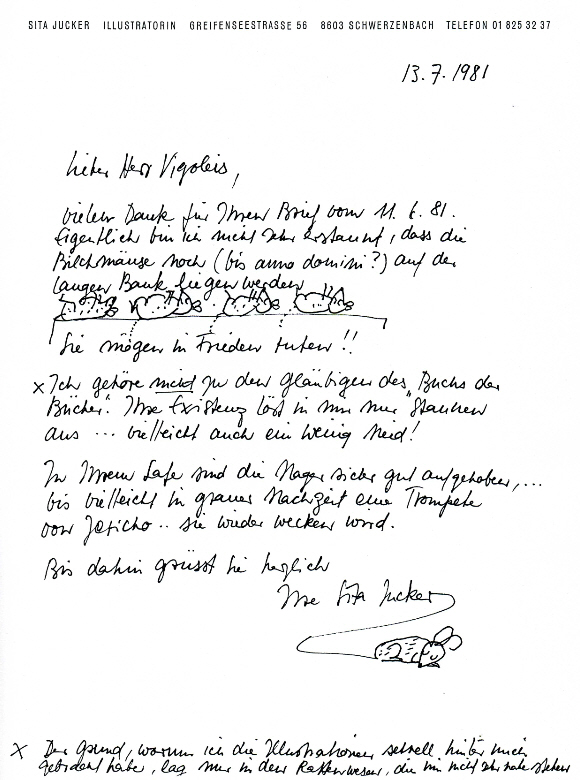 SITA JUCKER ILLUSTRATORIN GREIFENSEESTRASSE 56 8603 SCHWERZENBACH TELEFON 01 825 32 37
13.7.1981
Lieber Herr Vigoleis,
vielen Dank für Ihren Brief vom 11. 6. 81.
Eigentlich bin ich nicht sehr erstaunt, dass die
Bilchmäuse noch (bis anno domini?) auf der
langen Bank liegen werden
Sie mögen in Frieden ruhen!!
x Ich gehöre nicht zu den Gläubigen des "Buchs der
Bücher". Ihre Existenz löst in mir nur "Staunen
aus ... vielleicht auch ein wenig Neid!
In Ihrem Safe sind die Nager sicher gut aufgehoben, ...
bis vielleicht in grauer Nachzeit eine Trompete
von Jericho .. sie wieder wecken wird.
Bis dahin grüsst Sie herzlich
Ihre Sita Jucker
x Der Grund, warum ich die Illustrationen schnell hinter mich
gebracht habe, lag nur in den Rattenwesen, die mir nicht sehr nahe stehen